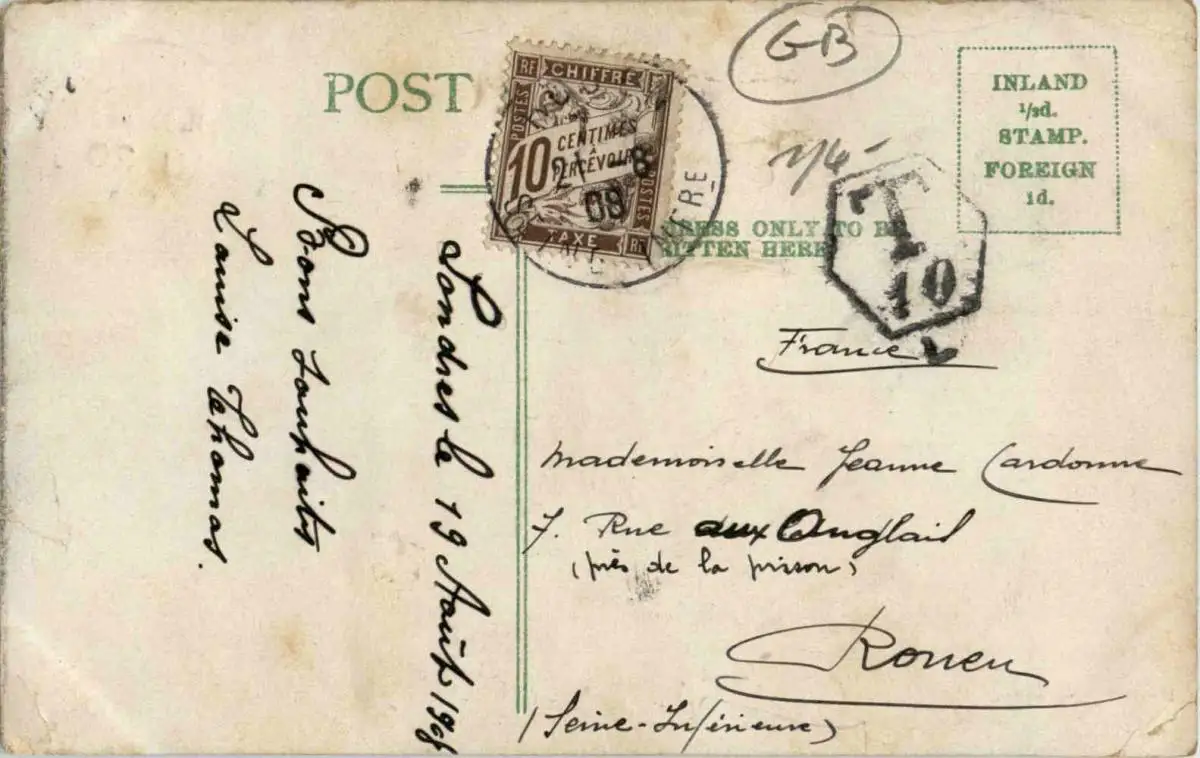 POST
RF CHIFFRE
POSTES
10
CENTIMES
A
PERCEVOIR
POSTES
TAXE RF
2 - 8
08
GB
INLAND
1/2d.
STAMP.
FOREIGN
1d.
T
10
ONLY TO BE
HERE
France
Mademoiselle Jeanne Cardonne
7. Rue aux Anglais
(près de la prison)
Rouen
(Seine-Inférieure)
Londres le 19 Août 1908
Bons Souhaits
Louise Thomas.